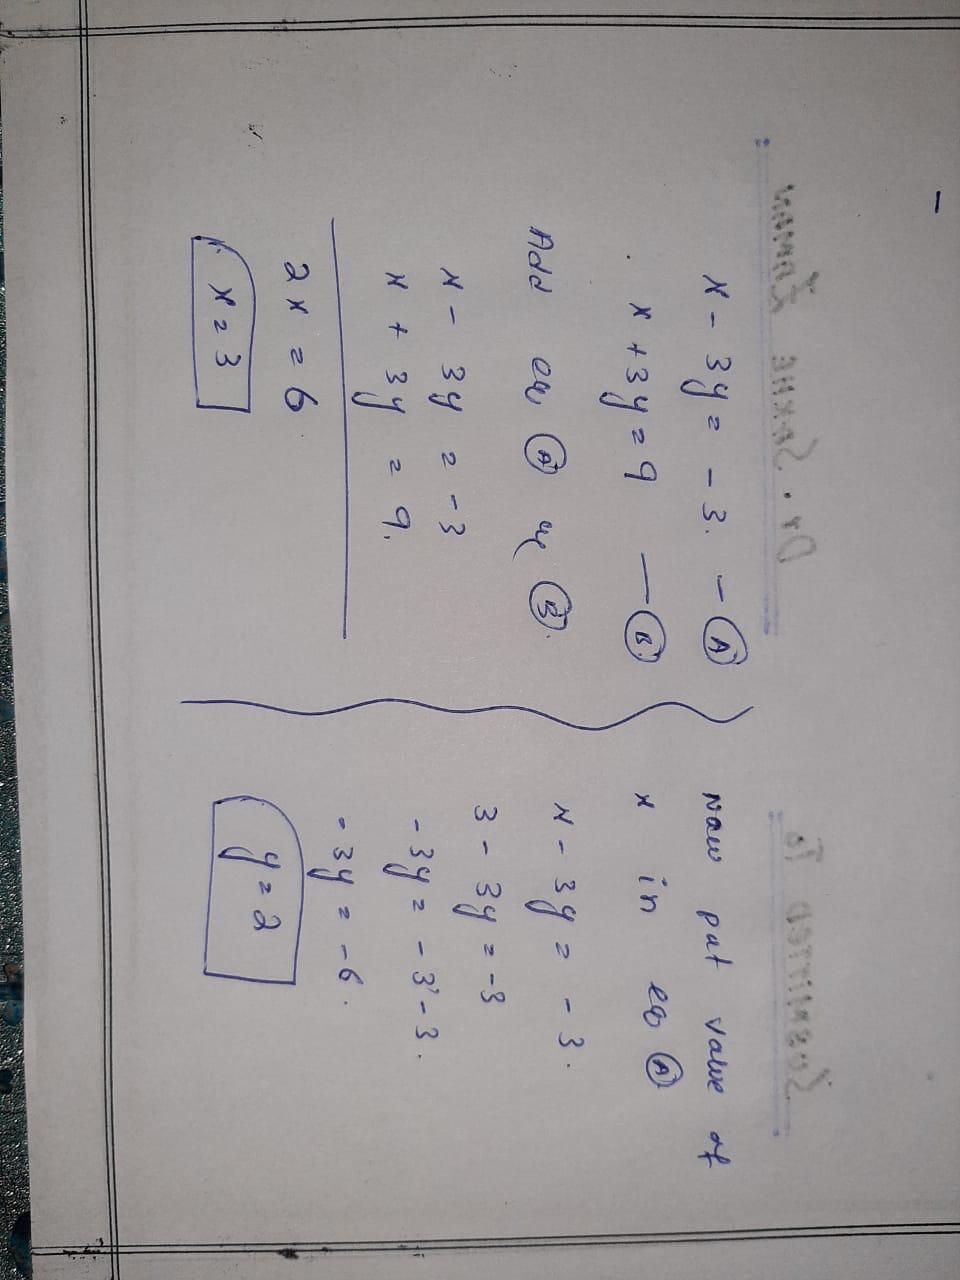 x - 3y = -3. - (A)
x + 3y = 9 - (B)
Add eq (A) & (B).
x - 3y = -3
x + 3y = 9.
2x = 6
x = 3
Now put value of
x in eq (A)
x - 3y = -3.
3 - 3y = -3
-3y = -3 - 3.
-3y = -6.
y = 2